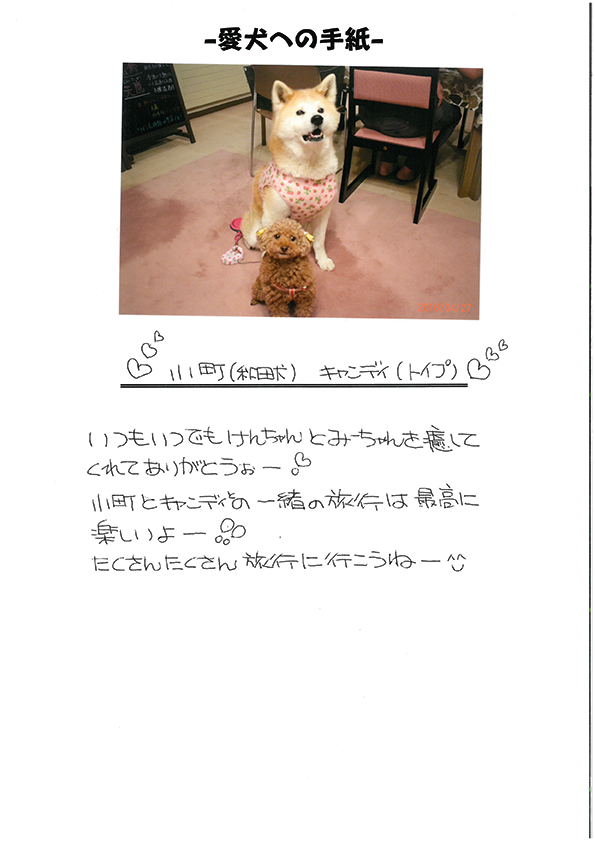 -愛犬への手紙-
小町(秋田犬) キャンディ(トイプ)
いつもいつでもけんちゃんとみーちゃんを癒して
くれてありがとうぉー
小町とキャンディとの一緒の旅行は最高に
楽しいよー
たくさんたくさん旅行に行こうねー